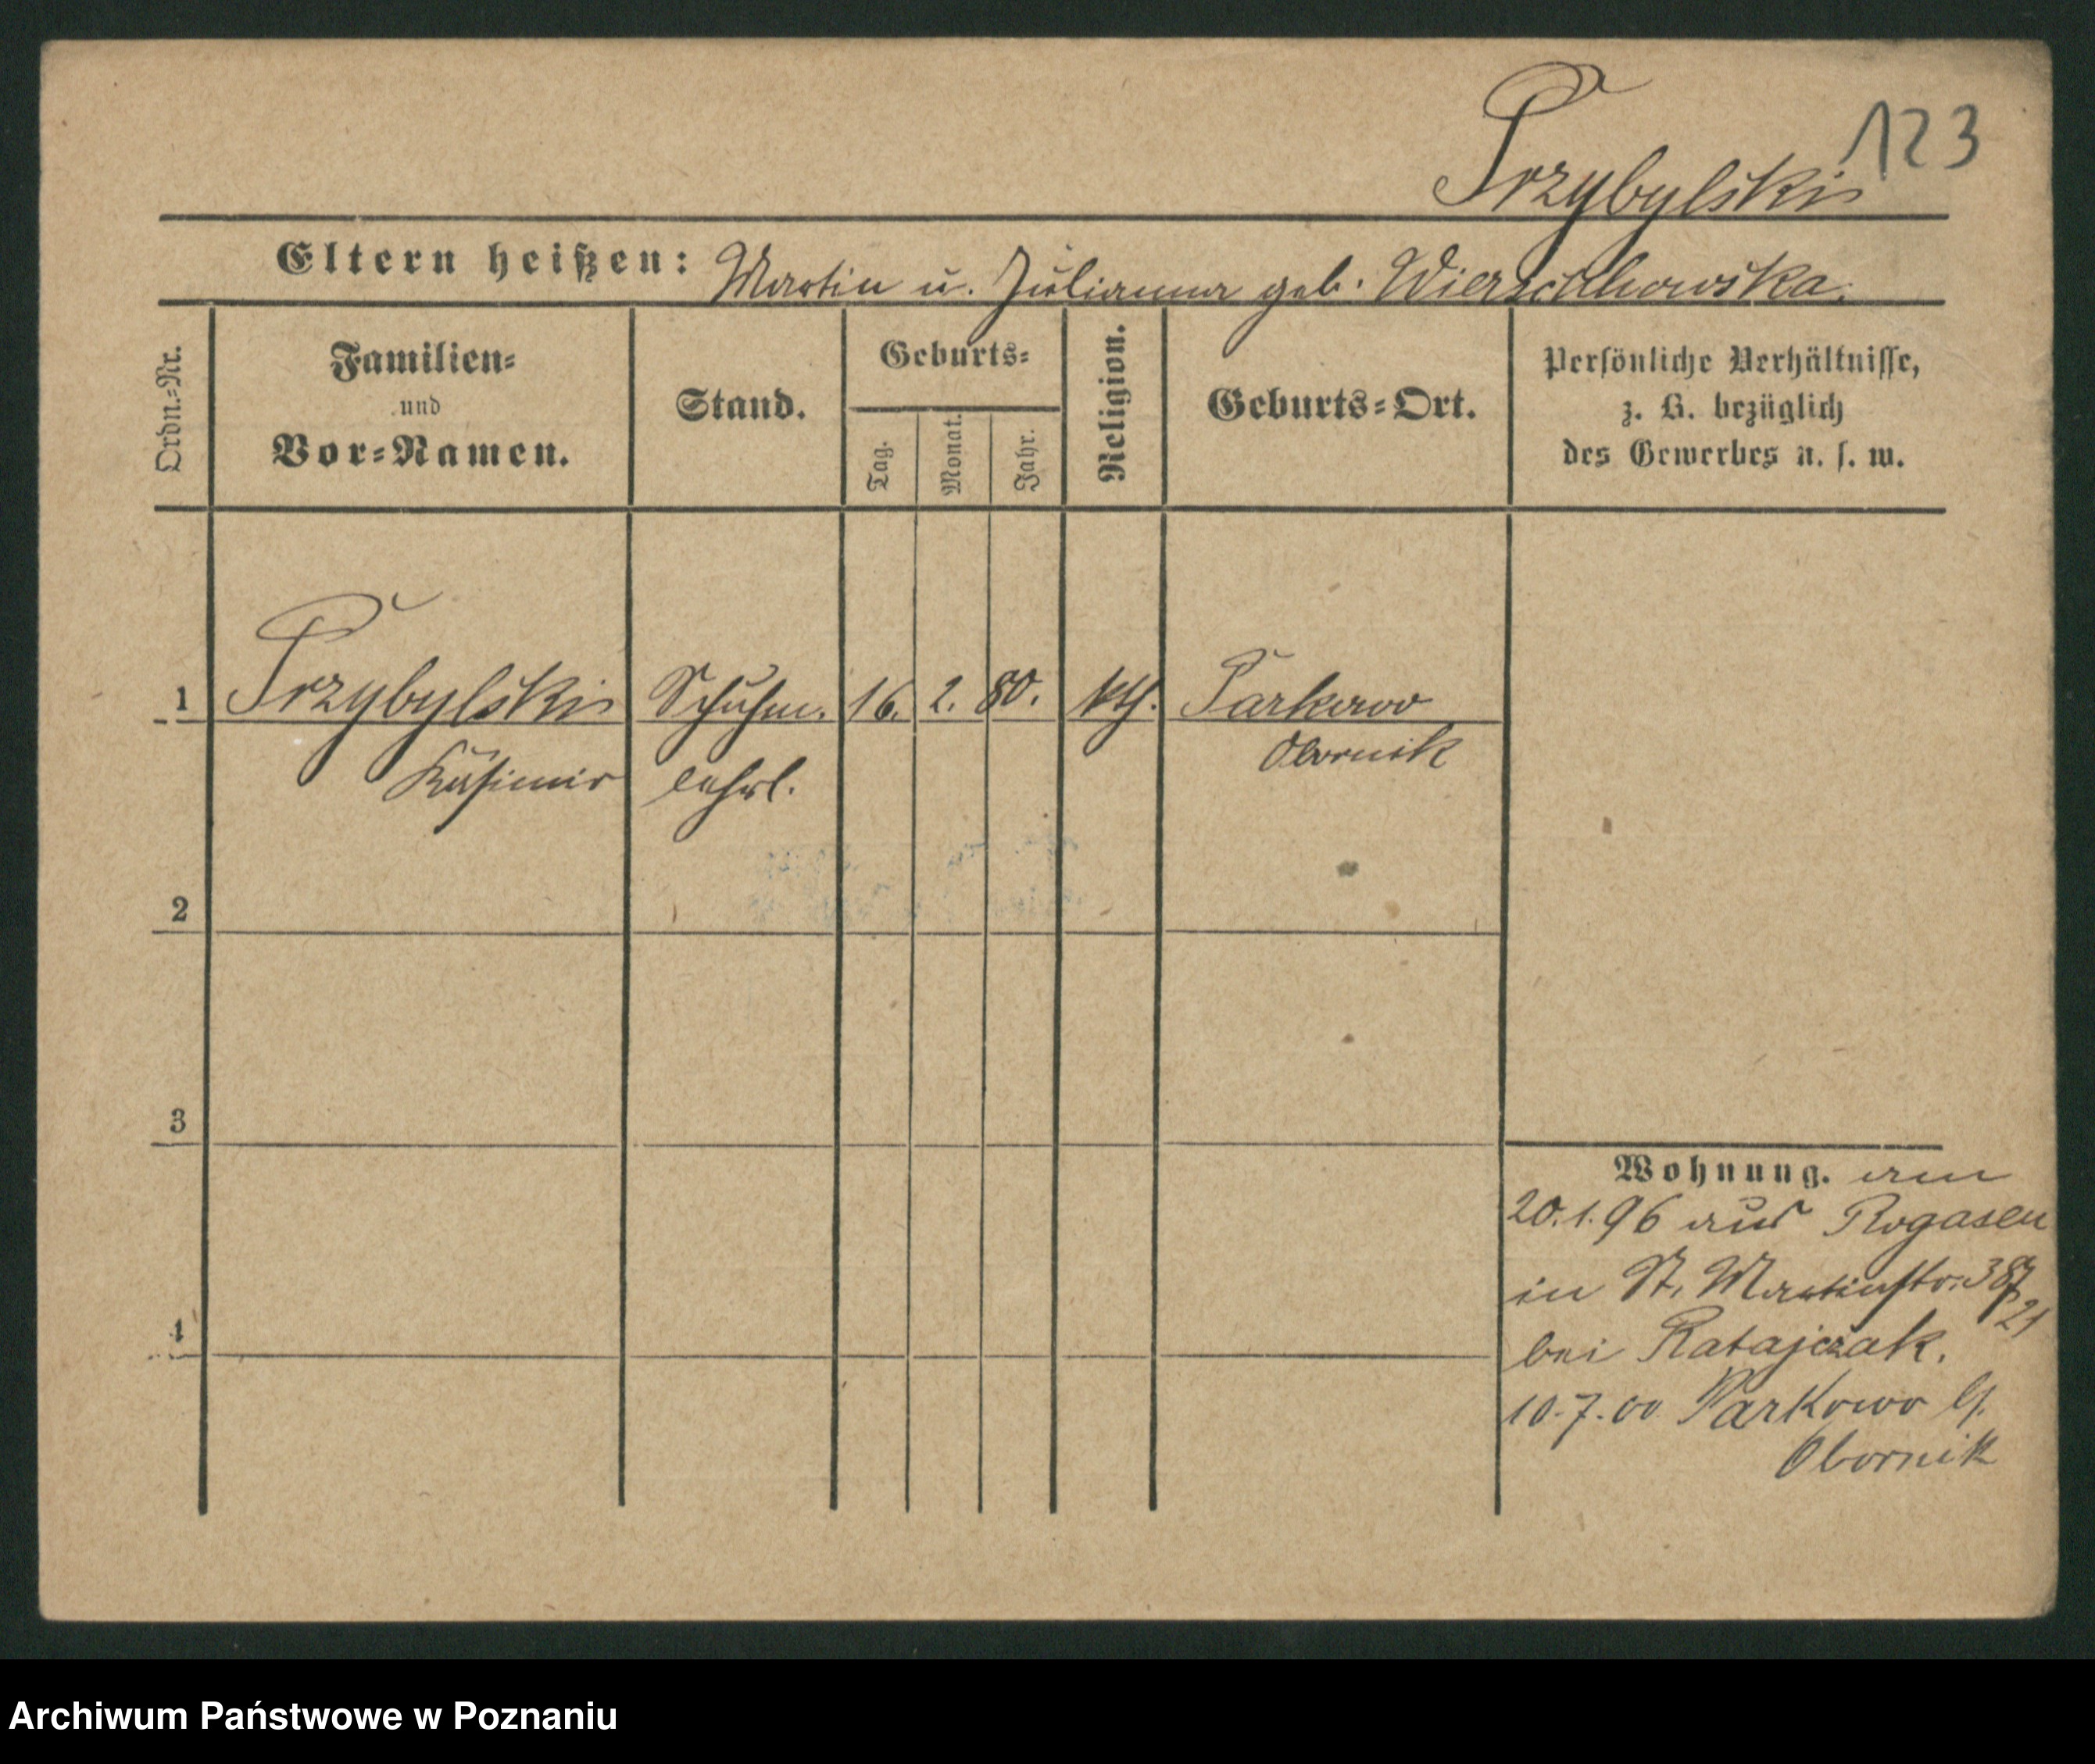 123
Przybylski
Eltern heißen: Martin u. Julianna geb. Wierzchowska.
Ordn.-Nr.
Familien-
und
Vor-Namen.
Stand.
Geburts-
Tag.
Monat.
Jahr.
Religion.
Geburts-Ort.
Persönliche Verhältnisse,
z. B. bezüglich
des Gewerbes u. s. w.
1 Przybylski Schuhm. 16. 2. 80. kth. Parkowo
Kasimir lehrl. Obornik
2
3
4
Wohnung. am
20.1.96 aus Rogasen
in St. Martinstr. 38
21
bei Ratajczak.
10.7.00 Parkowo
Obornik
Archiwum Państwowe w Poznaniu